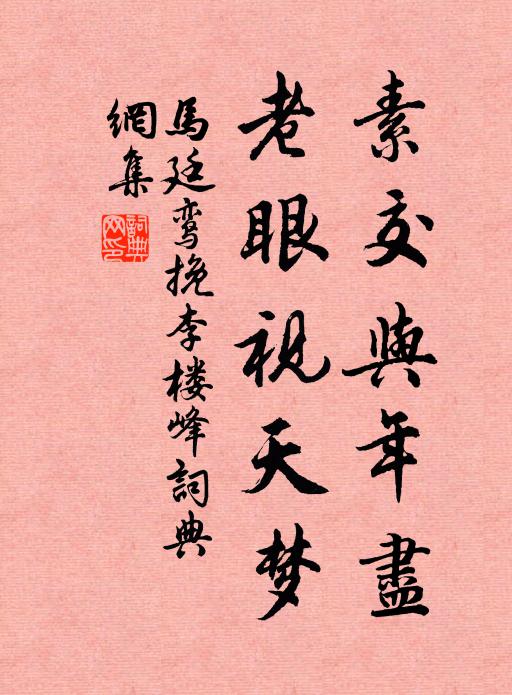 素交與年盡
老眼視天梦
馬廷鸾挽李楼峰詞典
網集
詞典網印